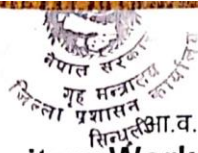 नेपाल सरकार
गृह मन्त्रालय
जिल्ला प्रशासन कार्यालय
सिन्धुली आ.व.